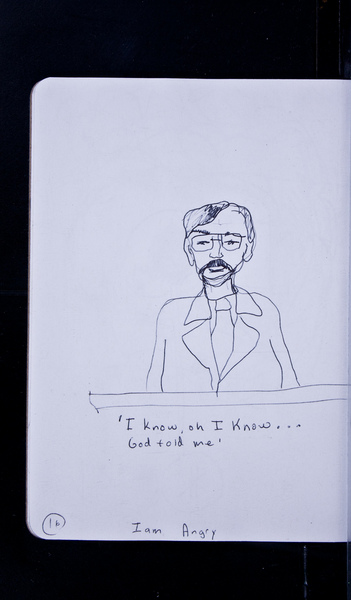 'I know, oh I know...
God told me'
16
Iam Angry